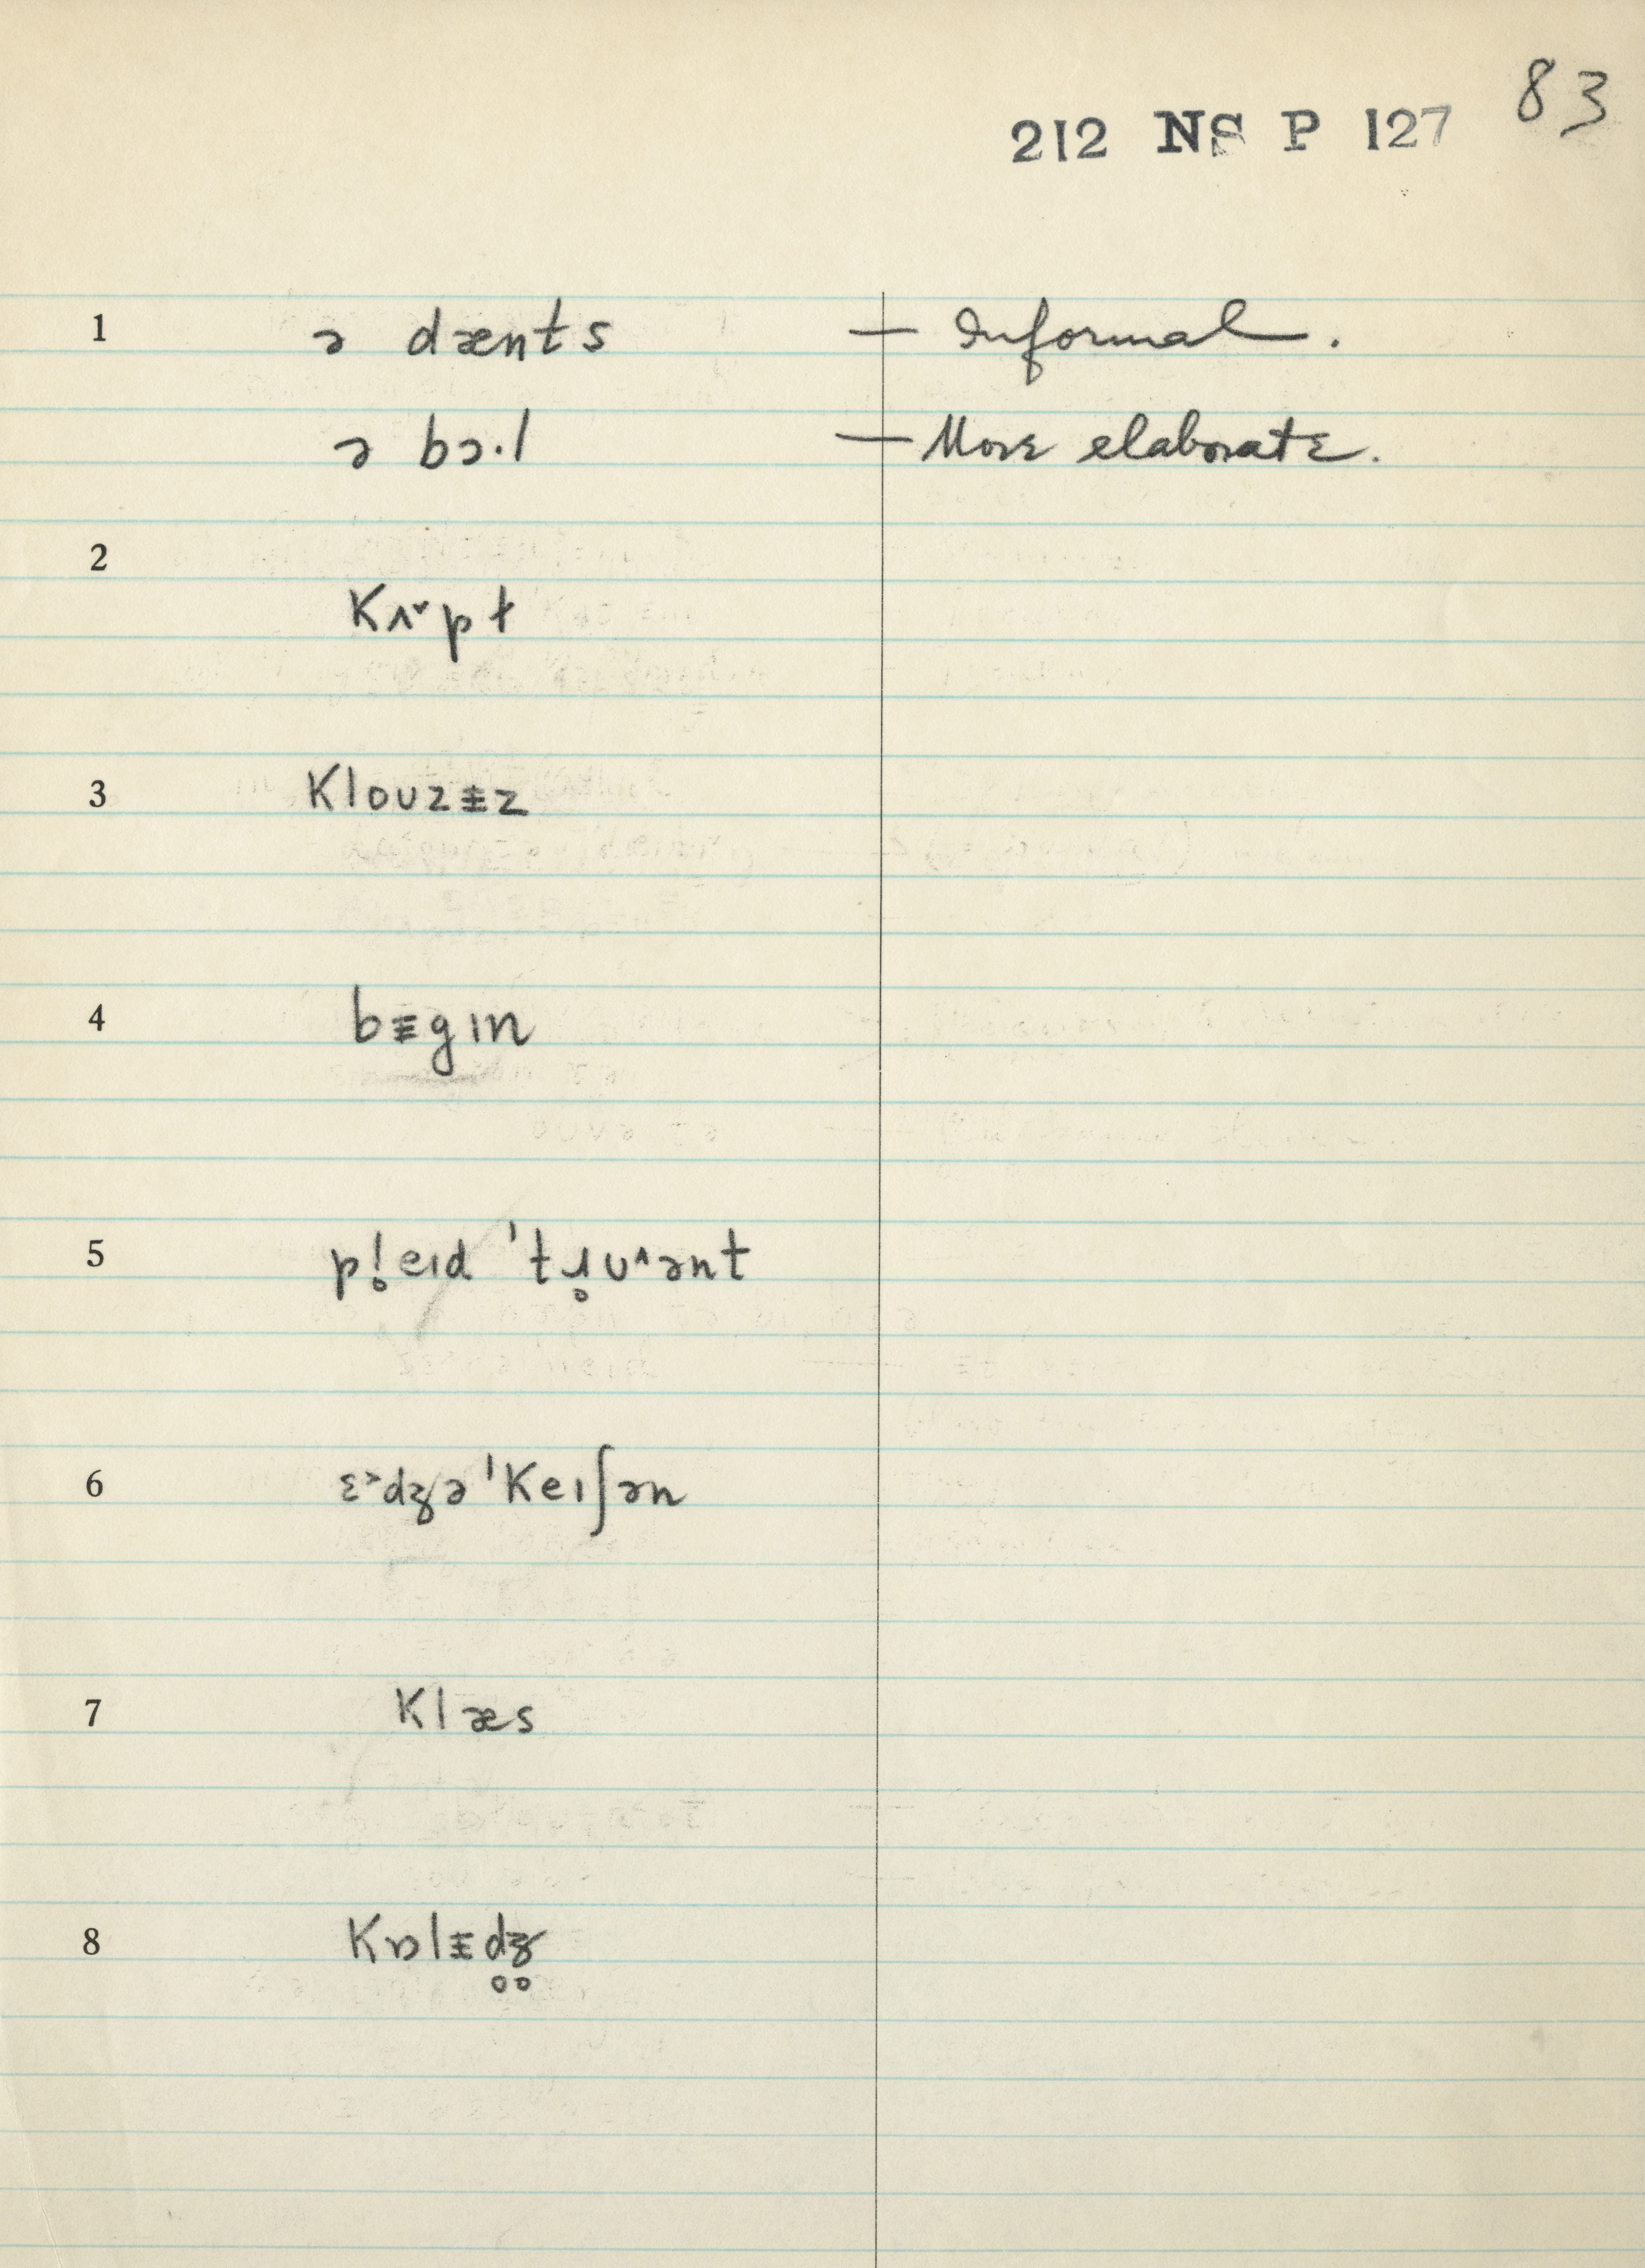 83
212 NS P 127
1 ə dænts — Informal.
ə bɔ·l — More elaborate.
2
Kʌ˅pt
3 Klouzɨz
4 bɨgɪn
5 pl̥eɪd 'tɹ̥u^ənt
6 ɛ˃dʒə'Keɪʃən
7 Klæs
8 Kɒlɨd̥ʒ̊